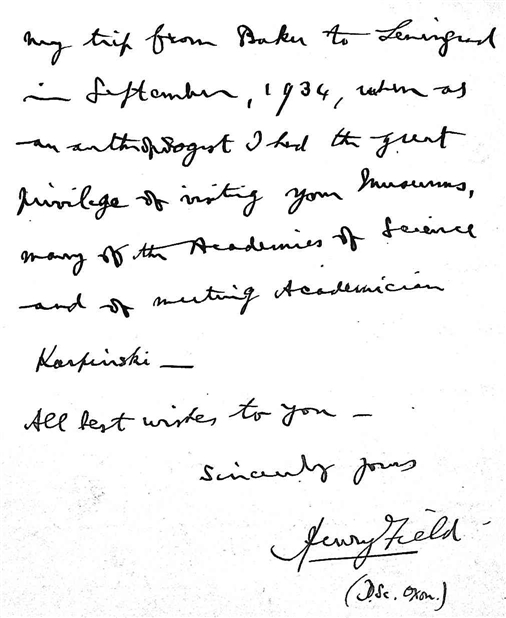 my trip from Baku to Leningrad
in September, 1934, when as
an anthropologist I had the great
privilege of visiting your Museums,
many of the Academies of Science
and of meeting Academician
Karpinski —
All best wishes to you —
Sincerely yours
Henry Field
(D.Sc. Oxon.)